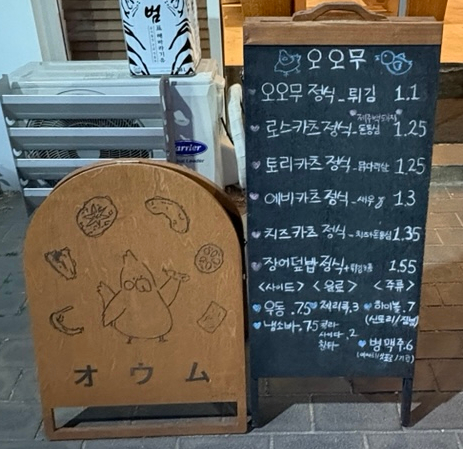 범
Carrier
오오무
오오무 정식_튀김 1.1
로스카츠 정식_등심 1.25
토리카츠 정식_닭다리살 1.25
에비카츠 정식_새우 1.3
치즈카츠 정식_치즈+등심 1.35
장어덮밥정식 1.55
<사이드> <음료> <주류>
우동 .75 제리콕 .3 하이볼 .7
냉소바 .75 콜라 사이다 .2 환타
병맥주 .6
オウム